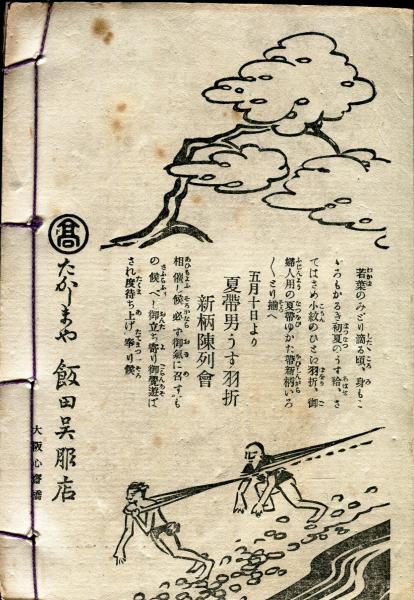 若葉のみどり滴る頃、身もこ
ゝろもかるき初夏のうす袷、さ
てはさめ小紋のひとへ羽折、御
婦人用の夏帶ゆかた帶新柄いろ
〳〵とり揃へ
五月十日より
夏帶男うす羽折
新柄陳列會
相催し候 必ず御氣に召すも
の候べく御立ち寄り御覽遊ば
され度待ち上げ奉り候
髙 たかしまや 飯田呉服店
大阪心齋橋